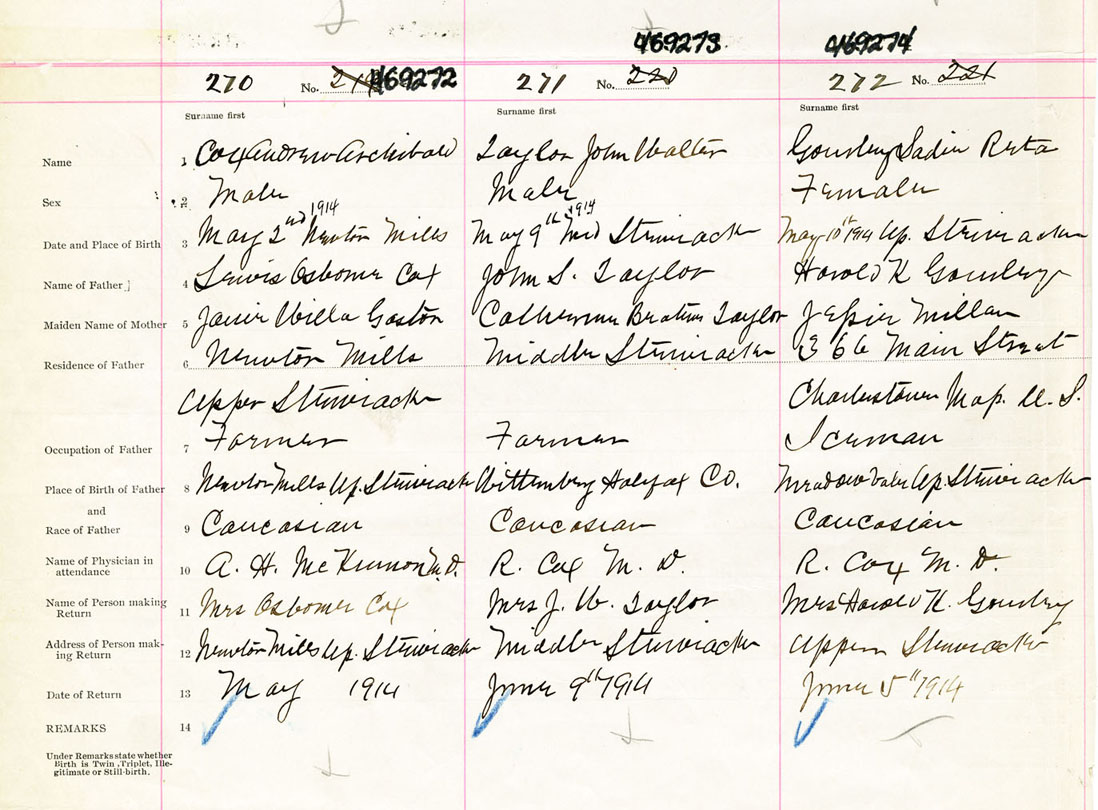 469273 469274
270 No. 219 469272 271 No. 220 272 No. 221
Surname first Surname first Surname first
Name 1 Cox Andrew Archibald Taylor John Walter Gourley Sadie Reta
Sex 2 Male Male Female
Date and Place of Birth 3 May 2nd 1914 Newton Mills May 9th 1914 Mid Stewiacke May 10th 1914 Up. Stewiacke
Name of Father 4 Lewis Osborne Cox John S. Taylor Harold K Gourley
Maiden Name of Mother 5 Janie Willa Gaston Catherine Taylor Jessie Millan
Residence of Father 6 Newton Mills Middle Stewiacke 366 Main Street
Upper Stewiacke Charlestown Mass. U. S.
Occupation of Father 7 Farmer Farmer Iceman
Place of Birth of Father 8 Newton Mills Up. Stewiacke Wittenburg Halifax Co. Meadowvale Up. Stewiacke
and
Race of Father 9 Caucasian Caucasian Caucasian
Name of Physician in
attendance 10 A. H. McKinnon M.D. R. Cox M. D. R. Cox M. D.
Name of Person making
Return 11 Mrs Osborne Cox Mrs J. W. Taylor Mrs Harold K. Gourley
Address of Person mak-
ing Return 12 Newton Mills Up. Stewiacke Middle Stewiacke Upper Stewiacke
Date of Return 13 May 1914 June 9th 1914 June 5th 1914
REMARKS 14
Under Remarks state whether
Birth is Twin, Triplet, Ille-
gitimate or Still-birth.